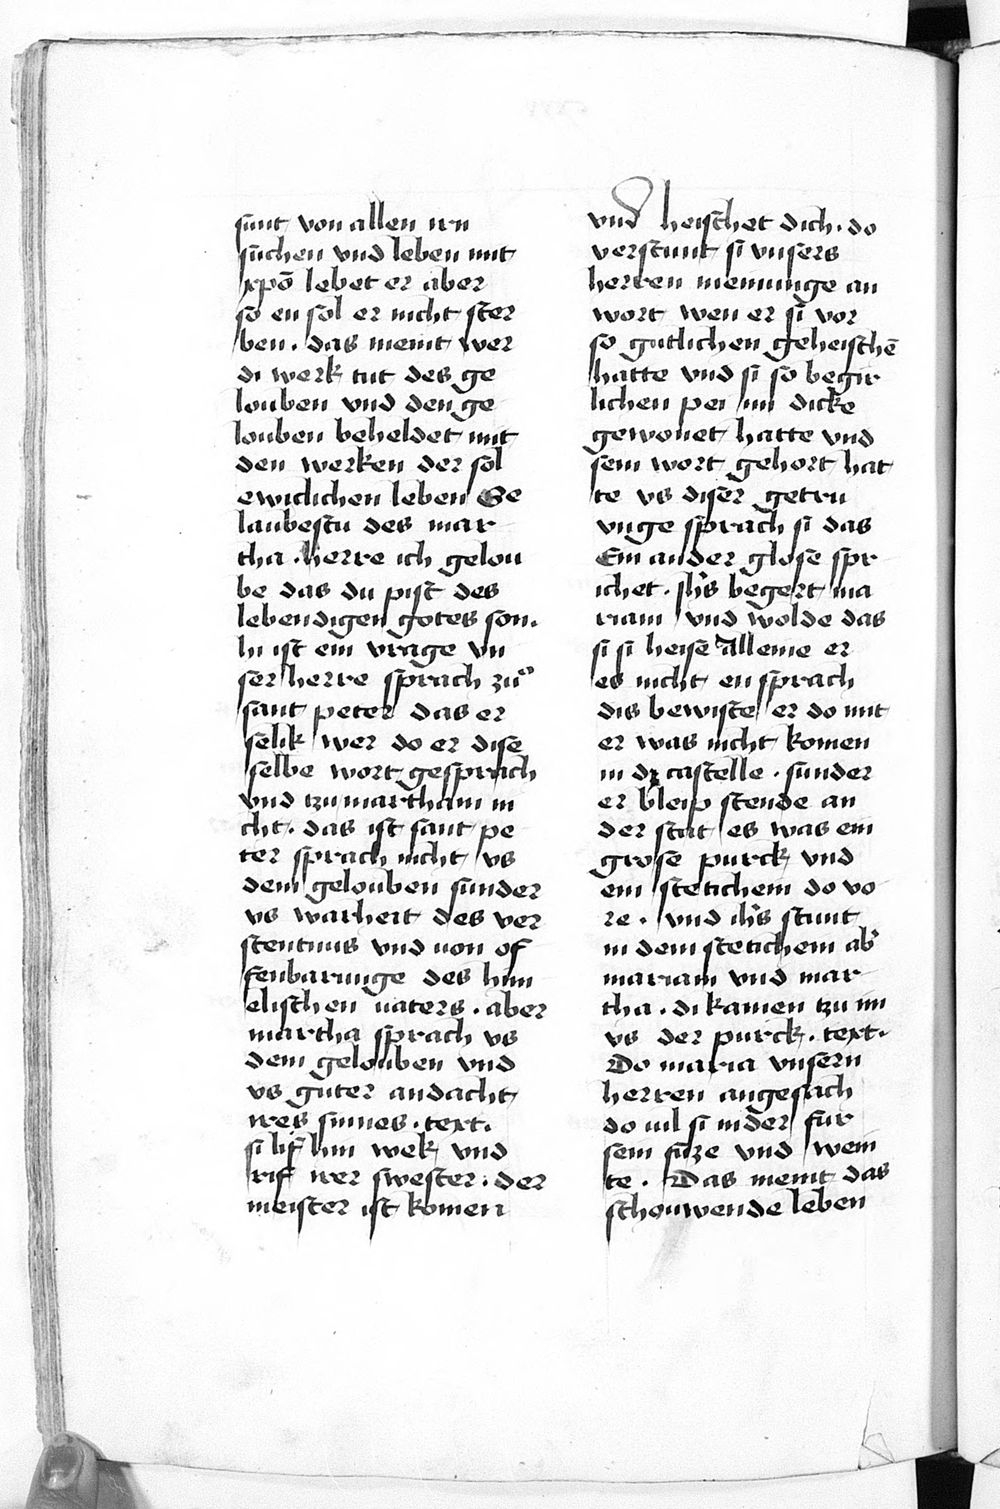 sunt von allen irn
suchen vnd leben mit
xpō lebet er aber
so en sol er nicht ster
ben . das meint wer
di werk tut des ge
louben vnd den ge
louben beheldet mit
den werken der sol
ewiclichen leben Ge
laubestu des mar
tha . herre ich gelou
be das du pist des
lebendigen gotes son .
hi ist ein vrage vn
ser herre sprach zuͦ
sant peter das er
selik wer do er dise
selbe wort gesprach
vnd tzu martham ni
cht . das ist sant pe
ter sprach nicht vs
dem gelouben sunder
vs warheit des ver
stentnus vnd uon of
fenbarunge des him
elischen uaters . aber
martha sprach vs
dem gelouben vnd
vs guter andacht
ires sinnes . text .
si lif hin wek vnd
rif irer swester : der
meister ist komen
vnd heischet dich . do
verstunt si vnsers
herren meinunge an
wort wen er si vor
so gutlichen geheischē
hatte vnd si so begir
lichen pei im dicke
gewonet hatte vnd
sein wort gehort hat
te vs diser getru
unge sprach si das
Ein ander glose spr
ichet . ihs begert ma
riam vnd wolde das
si si heise alleine er
es nicht en sprach
dis bewiste er do mit
er was nicht komen
in dz castelle . sunder
er bleip stende an
der stat es was ein
grose purck vnd
ein stetichein do vo
re . vnd ihs stunt
in dem stetichein ab'
mariam vnd mar
tha . di kamen tzu im
vs der purck . text .
Do maria vnsern
herren angesach
do uil si nider fur
sein fuze vnd wein
te . Das meint das
schouwende leben